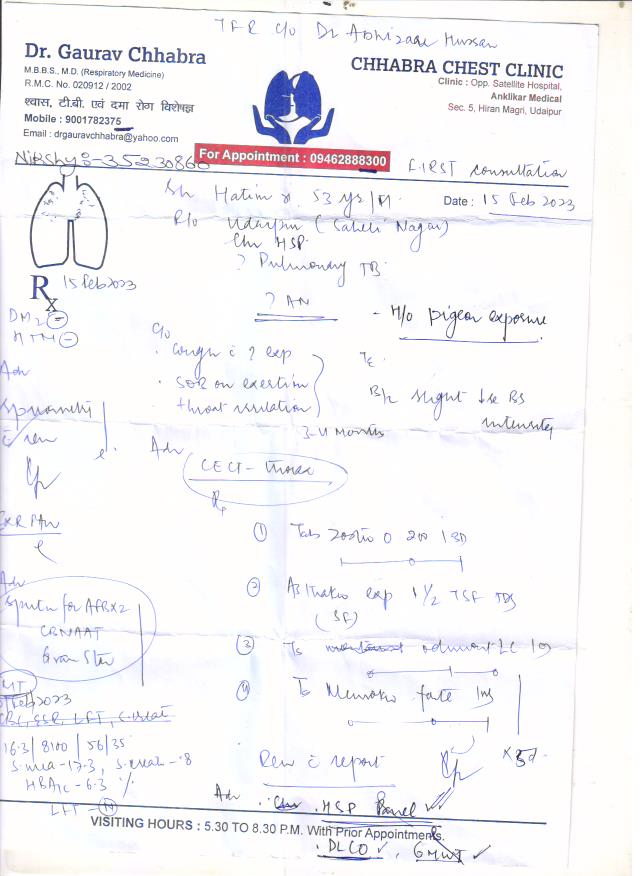 TFR c/o Dr Abhizaar Hussan
Dr. Gaurav Chhabra
M.B.B.S., M.D. (Respiratory Medicine)
R.M.C. No. 020912 / 2002
श्वास, टी.बी. एवं दमा रोग विशेषज्ञ
Mobile : 9001782375
Email : drgauravchhabra@yahoo.com
CHHABRA CHEST CLINIC
Clinic : Opp. Satellite Hospital,
Anklikar Medical
Sec. 5, Hiran Magri, Udaipur
For Appointment : 09462888300
Nikshy :- 35230860
FIRST consultation
Sh Hatim 53 yr/M.
Date : 15 Feb 2023
R/o Udaipur (Saheli Nagar)
Chr HSP.
? Pulmonary TB
Rx 15 Feb 2023
? AN
- H/o pigeon exposure
DM2 -
HTN -
c/o
. cough c ? exp
. SOB on exertion
throat irritation
3-4 months
B/L slight BS
intensity
Adv
Spirometry
c rev
Adv
CECT - thorax
CXR PAV
Adv
Sputum for AFB x 2
CBNAAT
Gram Stain
Rx
① Tab 200 1 BD
② exp 1 1/2 TSF TDS
(SF)
③ LC
④ forte
x 5d
Feb 2023
CBC, ESR, LFT, S. creat
16.3 / 8100 / 56 / 35
S. urea - 17.3, S. creat - .8
HBA1c - 6.3 %
LFT - N
Rev c report
Adv . HSP Panel ✓
VISITING HOURS : 5.30 TO 8.30 P.M. With Prior Appointments.
. DLCO ✓ , 6MWT ✓